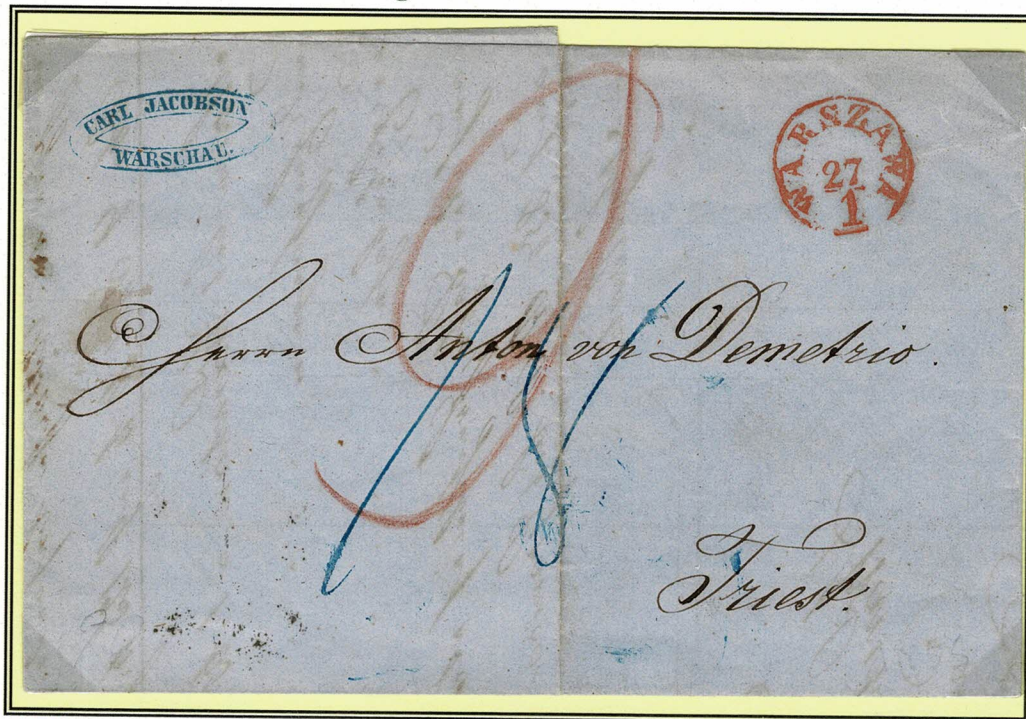 CARL JACOBSON
WARSCHAU.
WARSZAWA
27
1
9
18
Herrn Anton von Demetrio.
Triest.